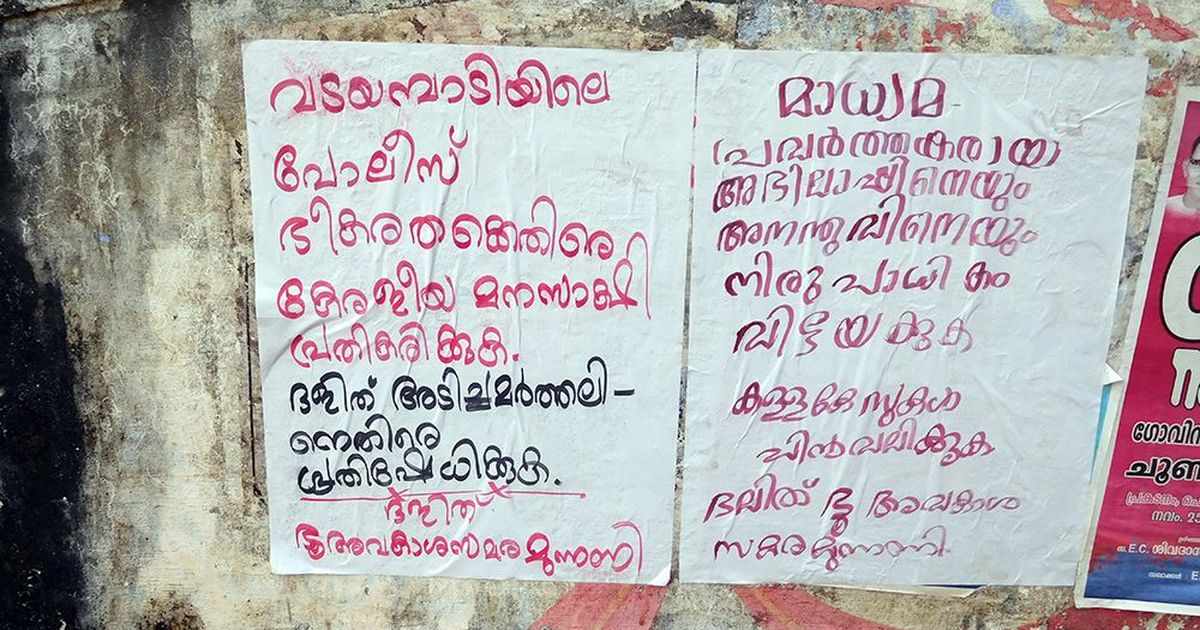 വടയമ്പാടിയിലെ
പോലീസ്
ഭീകരതക്കെതിരെ
കേരളീയ മനസാക്ഷി
പ്രതികരിക്കുക.
ദളിത് അടിച്ചമർത്തലി-
നെതിരെ
പ്രതിഷേധിക്കുക.
ദളിത്
ഭൂഅവകാശസമരമുന്നണി
മാധ്യമ
പ്രവർത്തകരായ
അഭിലാഷിനെയും
അനന്തുവിനെയും
നിരുപാധികം
വിട്ടയക്കുക
കള്ളകേസുകൾ
പിൻവലിക്കുക
ദലിത് ഭൂ അവകാശ
സമരമുന്നണി
ഗോവിന
ചൂണ
പ്രകടനം,
നവം. 25
E.C. ശിവദാ